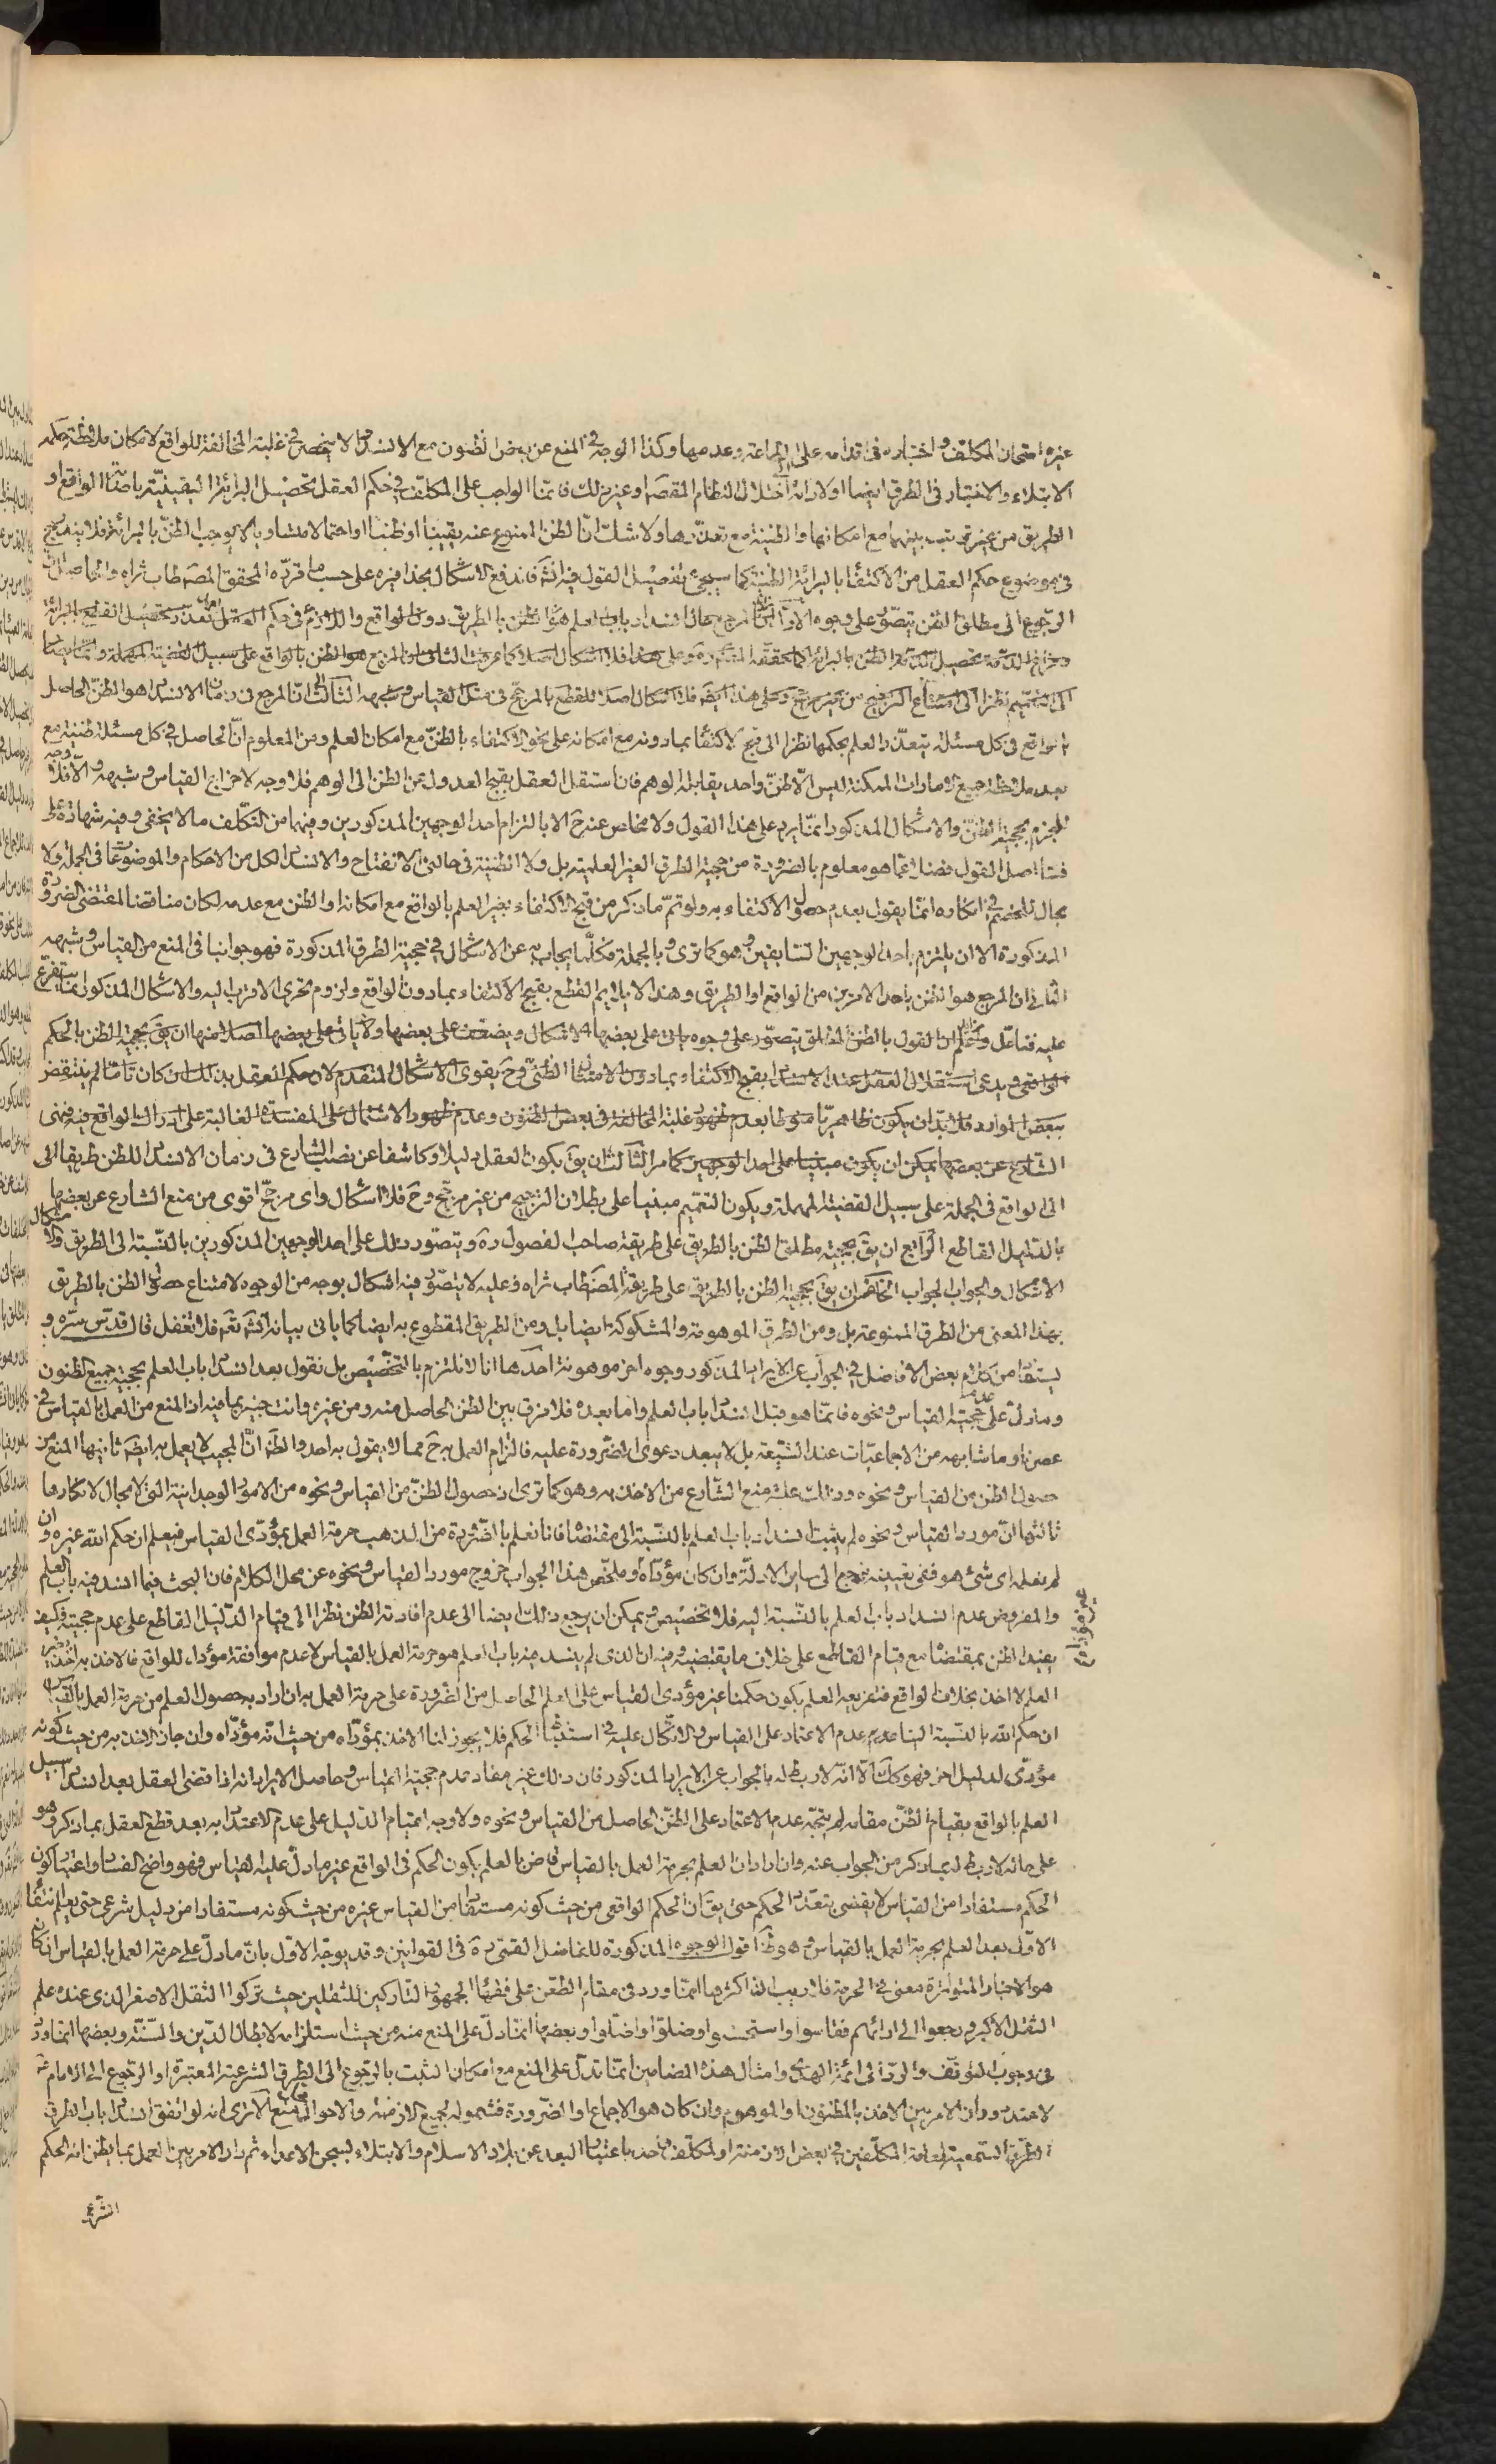 غيره امتحان المكلف واختباره في اقدامه على المراعة وعدمها وكذا الوجه في المنع عن بعض الظنون مع الانسداد لا ينحصر في غلبة المخالفة للواقع لامكان ملاحظة حكمة
الابتلاء والاختبار في الطرق ايضا اولارائه اختلال النظام المقصه او غير ذلك فانما الواجب على المكلف في حكم العقل تحصيل البرائة اليقينية باصابة الواقع او
الطريق من غير ترتب بينهما مع امكانها والظنية مع تعذرها ولا شك ان الظن الممنوع عنه يقينا او ظنا او احتمالا متساويا لا يوجب الظن بالبرائة فلا يندرج
في موضوع حكم العقل من الاكتفاء بالبرائة الظنية كما سيجئ تفصيل القول فيه انش فاندفع الاشكال بحذافيره على حسب ما قرره المحقق المصه طاب ثراه والحاصل ان
الرجوع الى مطلق الظن يتصور على وجوه الاول ان المرجع حال انسداد باب العلم هو الظن بالطريق دون الواقع واللازم في حكم العقل بعد تعذر تحصيل القطع بالبرائة
وفراغ الذمة تحصيل الظن بالبرائة كما حققه المصه ره وعلى هذا فلا اشكال اصلا كما عرفت الثاني ان المرجع هو الظن بالواقع على سبيل القضية المهملة وانما يصار
الى التعميم نظرا الى امتناع الترجيح من غير مرجح وعلى هذا ايضه فلا اشكال اصلا للقطع بالمرجح في مثل القياس وشبهه الثالث ان المرجع في زمان الانسداد هو الظن الحاصل
بالواقع في كل مسئلة يتعذر العلم بحكمها نظرا الى قبح الاكتفاء بما دونه مع امكانه على نحو الاكتفاء بالظن مع امكان العلم ومن المعلوم ان الحاصل في كل مسئلة ظنية مع
بعد ملاحظة جميع الامارات الممكنة ليس الا ظن واحد يقابله الوهم فان استقل العقل بقبح العدول عن الظن الى الوهم فلا وجه لاخراج القياس وشبهه والا فلا وجه
للجزم بحجية الظن والاشكال المذكور انما يرد على هذا القول ولا مخاص عنه ح الا بالتزام احد الوجهين المذكورين وفيهما من التكلف ما لا يخفى وفيه شهادة على
فساد اصل القول فضلا عما هو معلوم بالضرورة من حجية الطرق الغير العلمية بل ولا الظنية في حالتي الانفتاح والانسداد لكل من الاحكام والموضوعات في الجملة ولا
مجال للخصم في انكاره انما يقول بعدم حصول الاكتفاء به ولو تم ما ذكر من قبح الاكتفاء بغير العلم بالواقع مع امكانه او الظن مع عدمه لكان مناقضا لمقتضى الضرورة
المذكورة الا ان يلتزم باحد الوجهين السابقين وهو كما ترى وبالجملة فكلما يجاب به عن الاشكال في حجية الطرق المذكورة فهو جوابنا في المنع من القياس وشبهه
الثاني ان المرجع هو الظن باحد الامرين من الواقع او الطريق وهذا لا يلايم القطع بقبح الاكتفاء بما دون الواقع ولزوم تحرى الاقرب اليه والاشكال المذكور انما يتفرع
عليه فتامل واعلم ان القول بالظن المطلق يتصور على وجوه ياتي على بعضها الاشكال ويضعف على بعضها ولا ياتي على بعضها اصلا منها ان يق بحجية الظن بالحكم
الواقعي ويدعى استقلال العقل عند الانسداد بقبح الاكتفاء بما دون الامتثال الظني وح يقوى الاشكال المتقدم لان حكم العقل بذلك ان كان تاما لم ينتقض
ببعض الموارد فلا بد ان يكون ظاهريا منوطا بعدم ظهور غلبة المخالفة في بعض الظنون وعدم ظهور الاشتمال على المفسدة الغالبة على ادراك الواقع فيه فنهى
الشارع عن بعضها يمكن ان يكون مبنيا على احد الوجهين كما مر الثالث ان يق بكون العقل دليلا وكاشفا عن نصب الشارع في زمان الانسداد للظن طريقا الى
الى الواقع في الجملة على سبيل القضية المهملة ويكون التعميم مبنيا على بطلان الترجيح من غير مرجح وح فلا اشكال واى مرجح اقوى من منع الشارع عن بعضها
بالدليل القاطع الرابع ان يق بحجية مطلق الظن بالطريق على طريقة صاحب الفصول ره ويتصور ذلك على احد الوجهين المذكورين بالنسبة الى الطريق ولا اشكال
الاشكال والجواب الجواب الخامس ان يق بحجية الظن بالطريق على طريقة المصه طاب ثراه وعليه لا يتصور فيه اشكال بوجه من الوجوه لامتناع حصول الظن بالطريق
بهذا المعنى من الطرق الممنوعة بل ومن الطرق الموهومة والمشكوكة ايضا بل ومن الطريق المقطوع به ايضا كما ياتي بيانه انش تعه فلا تغفل قال قدس سره و
يستفاد من كلام بعض الافاضل في الجواب عن الايراد المذكور وجوه اخر موهونة احدها انا لا نلتزم بالتخصيص بل نقول بعد انسداد باب العلم بحجية جميع الظنون
وما دل على عدم حجية القياس ونحوه فانما هو قبل انسداد باب العلم واما بعده فلا فرق بين الظن الحاصل منه ومن غيره وانت خبير بما فيه اذ المنع من العمل بالقياس في
عصرنا وما شابهه من الاجماعيات عند الشيعة بل لا يبعد دعوى الضرورة عليه فالتزام العمل به ح مما لا يقول به احد والظه ان المجيب لا يعمل به ايضه ثانيها المنع من
حصول الظن من القياس ونحوه وذلك علة منع الشارع من الاخذ به وهو كما ترى اذ حصول الظن من القياس ونحوه من الامور الوجدانية التي لا مجال لانكارها
ثالثها ان مورد القياس ونحوه لم يثبت انسداد باب العلم بالنسبة الى مقتضاه فانا نعلم بالضرورة من المذهب حرمة العمل بمؤدى القياس فيعلم ان حكم الله غيره وان
لم نعلم اى شئ هو ففي تعيينه نرجع الى ساير الادلة وان كان مؤداه وملخص هذا الجواب خروج مورد القياس ونحوه عن محل الكلام فان البحث فيما انسد فيه باب العلم
والمفروض عدم انسداد باب العلم بالنسبة اليه فلا تخصيص ويمكن ان يرجع ذلك ايضا الى عدم افادته الظن نظرا الى قيام الدليل القاطع على عدم حجيته فكيف
يفيد الظن بمقتضاه مع قيام القاطع على خلاف ما يقتضيه وفيه ان الذى لم ينسد فيه باب العلم هو حرمة العمل بالقياس لا عدم موافقة مؤداه للواقع فالاخذ به اخذ بغير
العلم لا اخذ بخلاف الواقع فتفريعه العلم بكون حكمنا غير مؤدى القياس على العلم الحاصل من الضرورة على حرمة العمل به ان اراد به حصول العلم من حرمة العمل بالقياس
ان حكم الله بالنسبة الينا عدم عدم الاعتماد على القياس والاتكال عليه في استنباط الحكم فلا يجوز لنا الاخذ بمؤداه من حيث انه مؤداه وان جاز الاخذ به من حيث كونه
مؤدى لدليل اخر فهو كك الا انه لا ربط له بالجواب عن الايراد المذكور فان ذلك غير مفاد عدم حجية القياس وحاصل الايراد انه اذا قضى العقل بعد انسداد سبيل
العلم بالواقع بقيام الظن مقامه لم يتجه عدم الاعتماد على الظن الحاصل من القياس ونحوه ولا وجه لقيام الدليل على عدم الاعتداد به بعد قطع العقل بما ذكر وهو
على حاله لا ربط له بما ذكر من الجواب عنه وان اراد ان العلم بحرمة العمل بالقياس قاض بالعلم بكون الحكم في الواقع غير ما دل عليه القياس فهو واضح الفساد واعتبار كون
الحكم مستفادا من القياس لا يقضي بتعدد الحكم حتى يق ان الحكم الواقعي من حيث كونه مستفادا من القياس غيره من حيث كونه مستفادا من دليل شرعى حتى يعلم انتفاء
الاول بعد العلم بحرمة العمل بالقياس وهو ظه اقول الوجوه المذكورة للفاضل القمى ره في القوانين وقد يوجه الاول بان ما دل على حرمة العمل بالقياس ان كان
هو الاخبار المتواترة معنى في الحرمة فلا ريب ان اكثرها انما ورد في مقام الطعن على فقهاء الجمهور التاركين للثقلين حيث تركوا الثقل الاصغر الذى عنده علم
الثقل الاكبر ورجعوا الى ارائهم فقاسوا واستحسنوا وضلوا واضلوا وبعضها انما دل على المنع منه من حيث استلزامه لابطال الدين والسنة وبعضها انما ورد
في وجوب التوقف والرد الى ائمة الهدى وامثال هذه المضامين انما تدل على المنع مع امكان التثبت بالرجوع الى الطرق الشرعية المعتبرة او الرجوع الى الامام ع
لا عند دوران الامر بين الاخذ بالمظنون او الموهوم وان كان هو الاجماع او الضرورة فشموله لجميع الازمنة والاحوال ممنوع الا ترى انه لو اتفق انسداد باب الطرق
الطرق السمعية لعامة المكلفين في بعض الازمنة او لمكلف واحد باعتبار البعد عن بلاد الاسلام والابتلاء بسجن الاعداء ثم دار الامر بين العمل بما يظن انه الحكم
الشرعى